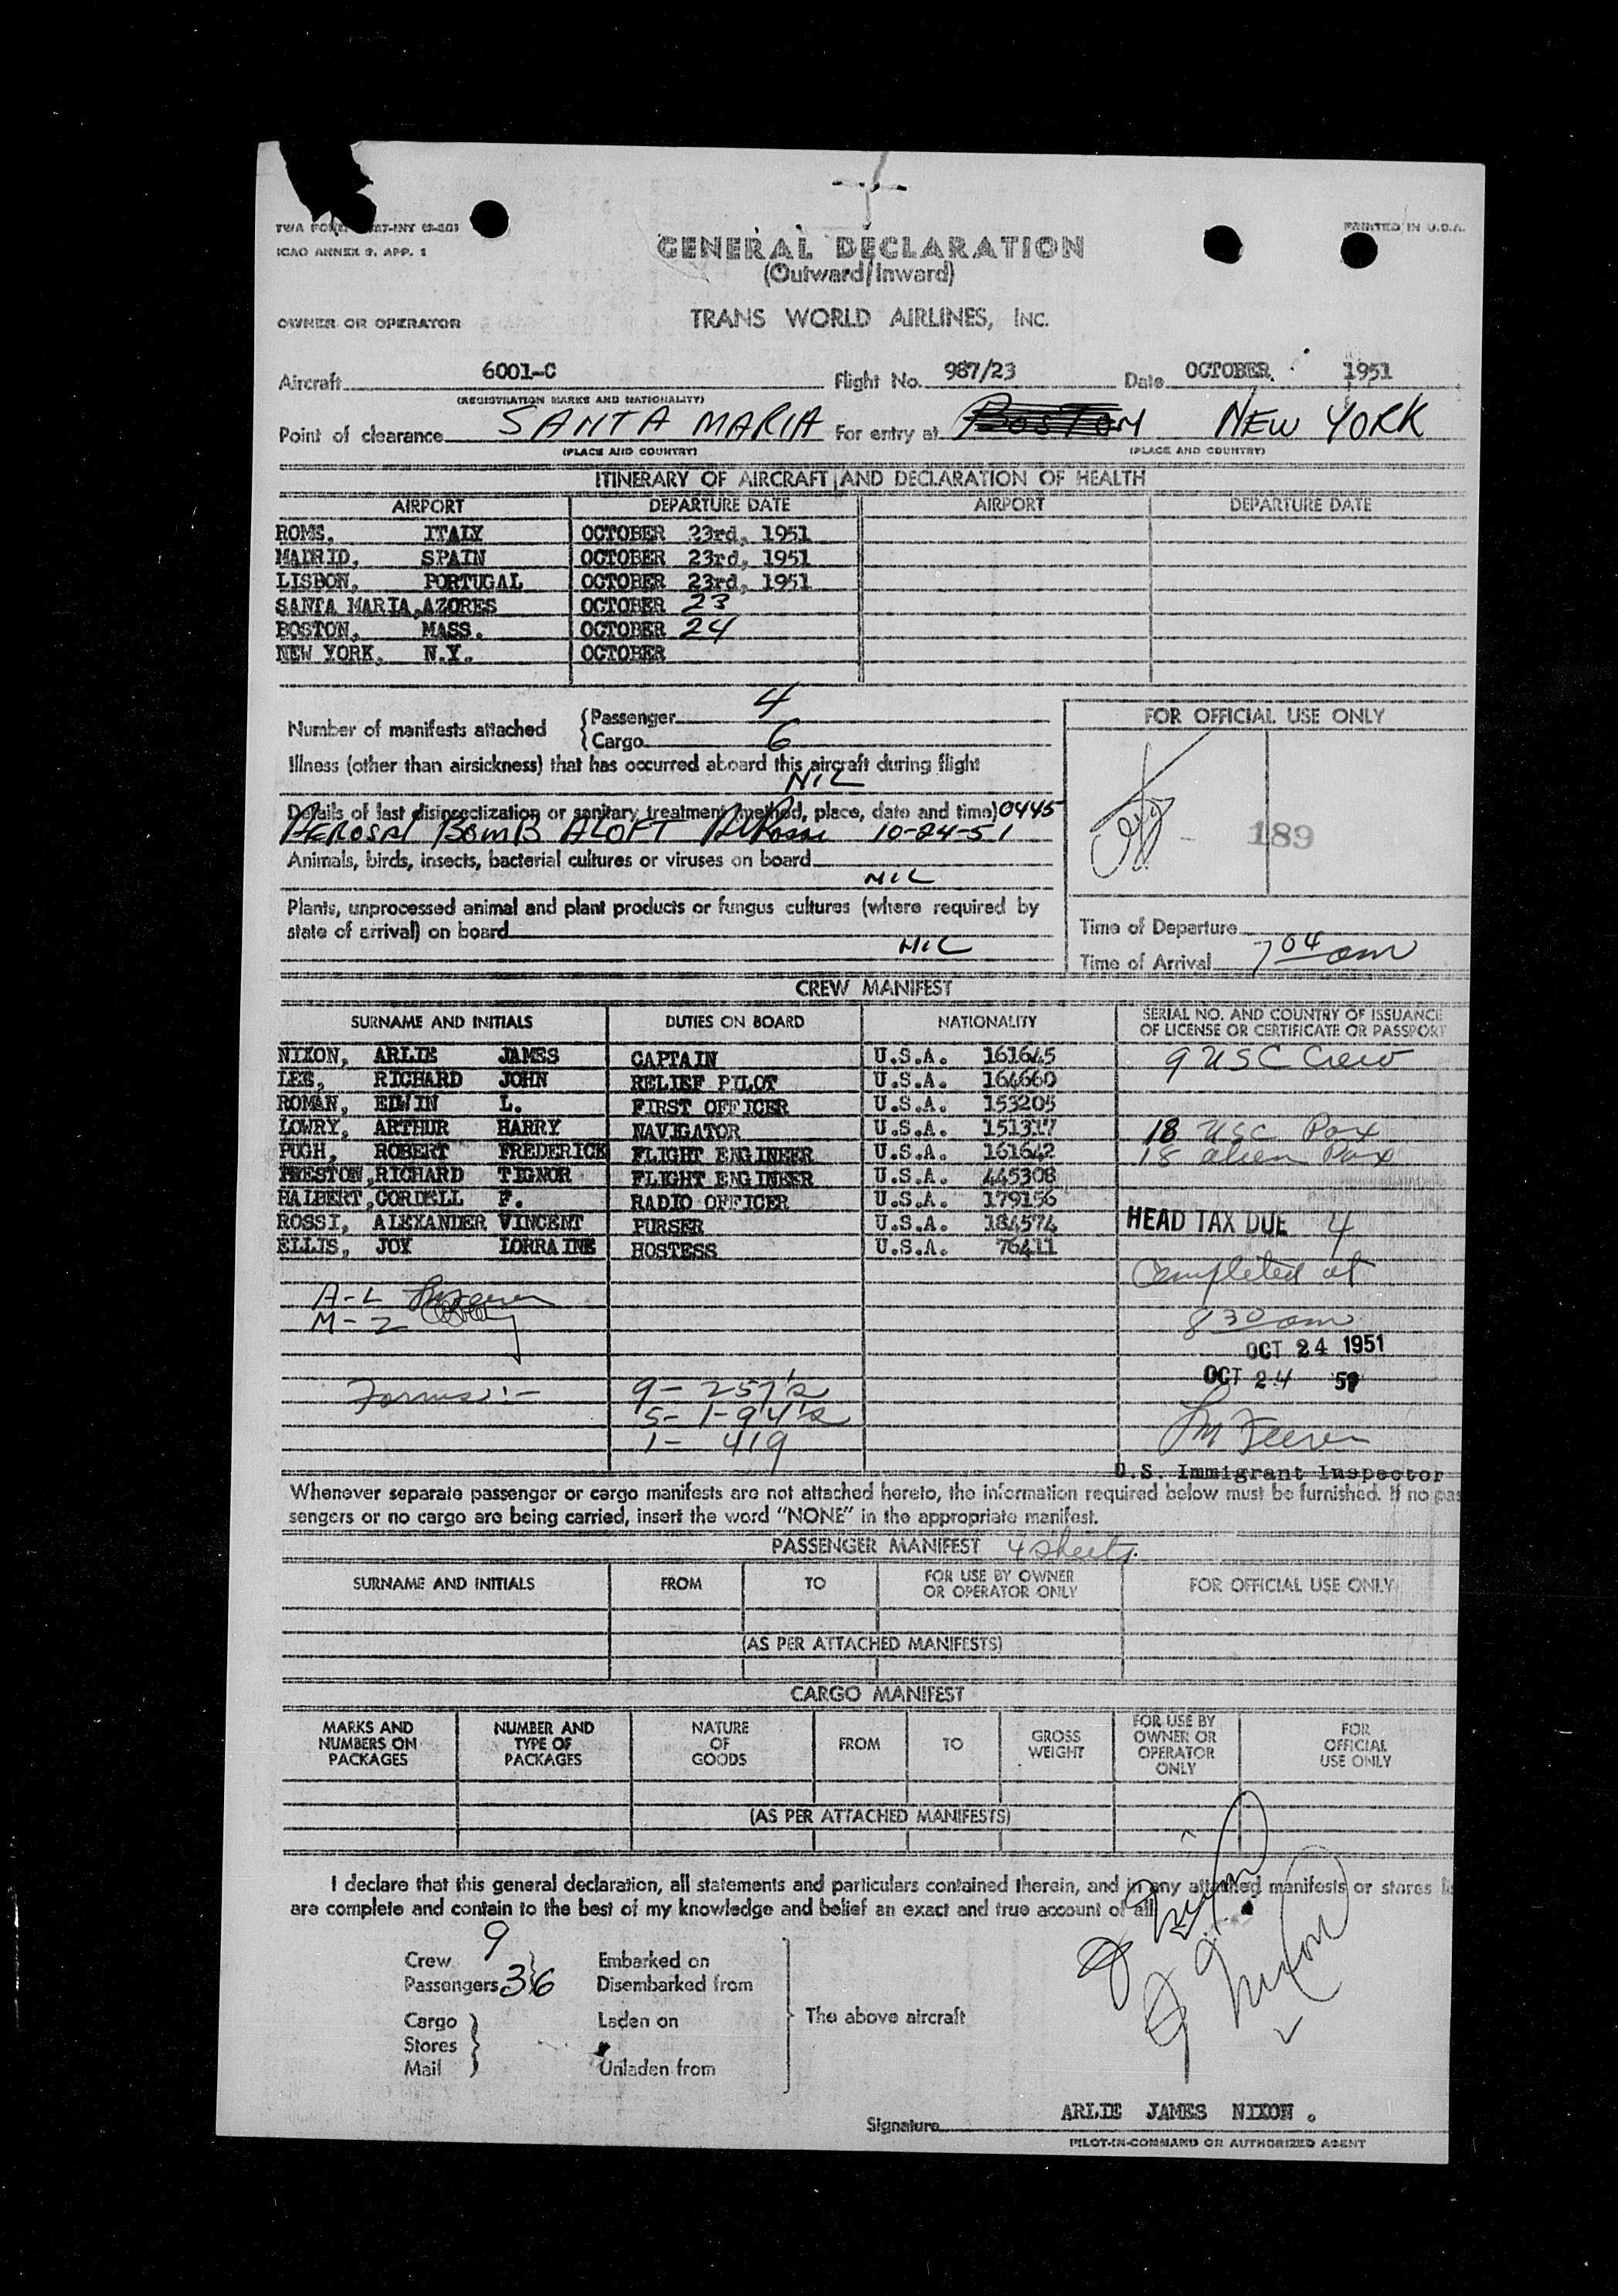 TWA FORM INT
ICAO ANNEX 9, APP. 1
PRINTED IN U.S.A.
GENERAL DECLARATION
(Outward/Inward)
OWNER OR OPERATOR TRANS WORLD AIRLINES, INC.
Aircraft 6001-C Flight No. 987/23 Date OCTOBER 1951
(REGISTRATION MARKS AND NATIONALITY)
Point of clearance SANTA MARIA For entry at BOSTON NEW YORK
(PLACE AND COUNTRY) (PLACE AND COUNTRY)
ITINERARY OF AIRCRAFT AND DECLARATION OF HEALTH
AIRPORT DEPARTURE DATE AIRPORT DEPARTURE DATE
ROME, ITALY OCTOBER 23rd, 1951
MADRID, SPAIN OCTOBER 23rd, 1951
LISBON, PORTUGAL OCTOBER 23rd, 1951
SANTA MARIA, AZORES OCTOBER 23
BOSTON, MASS. OCTOBER 24
NEW YORK, N.Y. OCTOBER
Number of manifests attached
Passenger 4
Cargo 6
Illness (other than airsickness) that has occurred aboard this aircraft during flight
NIL
Details of last disinsectization or sanitary treatment (method, place, date and time) 0445
AEROSOL BOMB ALOFT 10-24-51
Animals, birds, insects, bacterial cultures or viruses on board
NIL
Plants, unprocessed animal and plant products or fungus cultures (where required by
state of arrival) on board
NIL
FOR OFFICIAL USE ONLY
189
Time of Departure
Time of Arrival 7 04 am
CREW MANIFEST
SURNAME AND INITIALS DUTIES ON BOARD NATIONALITY SERIAL NO. AND COUNTRY OF ISSUANCE
OF LICENSE OR CERTIFICATE OR PASSPORT
NIXON, ARLIE JAMES CAPTAIN U.S.A. 161645 9 USC Crew
LEE, RICHARD JOHN RELIEF PILOT U.S.A. 164660
ROMAN, EDWIN L. FIRST OFFICER U.S.A. 153205
LOWRY, ARTHUR HARRY NAVIGATOR U.S.A. 151317 18 USC Pax
PUGH, ROBERT FREDERICK FLIGHT ENGINEER U.S.A. 161642 18 alien Pax
PRESTON, RICHARD TIGNOR FLIGHT ENGINEER U.S.A. 445308
HALBERT, CORDELL F. RADIO OFFICER U.S.A. 179156
ROSSI, ALEXANDER VINCENT PURSER U.S.A. 184574 HEAD TAX DUE 4
ELLIS, JOY LORRAINE HOSTESS U.S.A. 76411
Completed at
A-L
M-2
8 30 am
OCT 24 1951
OCT 24 51
Forms:- 9- 257's
5- I-94's
1- 419
U.S. Immigrant Inspector
Whenever separate passenger or cargo manifests are not attached hereto, the information required below must be furnished. If no pas
sengers or no cargo are being carried, insert the word "NONE" in the appropriate manifest.
PASSENGER MANIFEST 4 sheets.
SURNAME AND INITIALS FROM TO FOR USE BY OWNER
OR OPERATOR ONLY FOR OFFICIAL USE ONLY
(AS PER ATTACHED MANIFESTS)
CARGO MANIFEST
MARKS AND
NUMBERS ON
PACKAGES
NUMBER AND
TYPE OF
PACKAGES
NATURE
OF
GOODS
FROM
TO
GROSS
WEIGHT
FOR USE BY
OWNER OR
OPERATOR
ONLY
FOR
OFFICIAL
USE ONLY
(AS PER ATTACHED MANIFESTS)
I declare that this general declaration, all statements and particulars contained therein, and in any attached manifests or stores
are complete and contain to the best of my knowledge and belief an exact and true account of all
Crew 9 Embarked on
Passengers 36 Disembarked from
Cargo Laden on The above aircraft
Stores
Mail Unladen from
A J Nixon
Signature ARLIE JAMES NIXON.
PILOT-IN-COMMAND OR AUTHORIZED AGENT